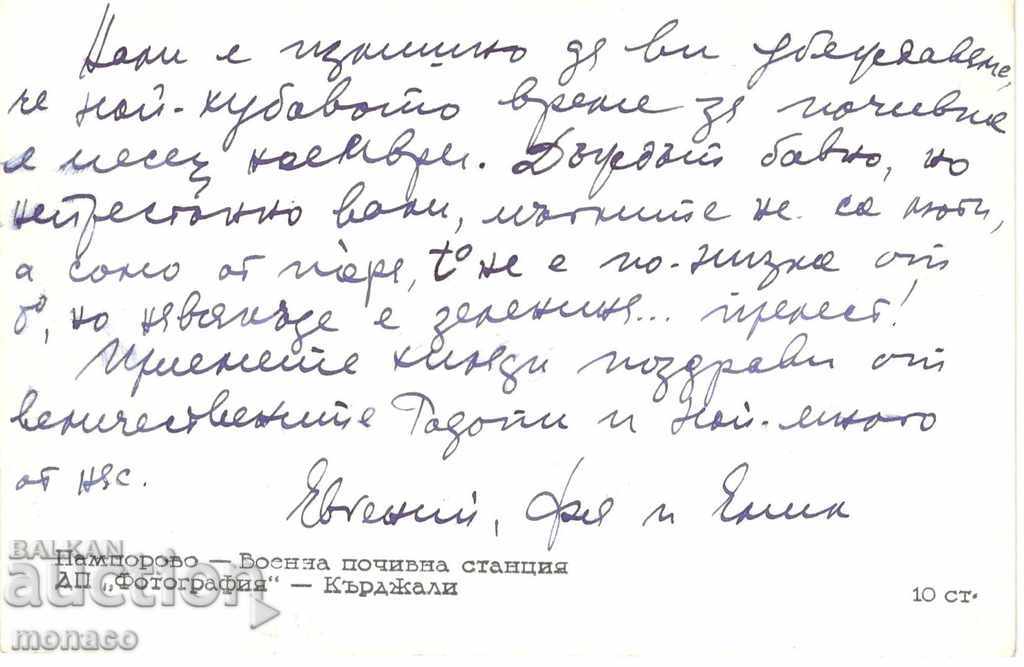 Нали е излишно да ви убеждаваме,
че най-хубавото време за почивка
е месец ноември. Дъждът бавно, но
непрестанно вали, мъглите не са гъсти,
а само от пара, t° не е по-низка от
0°, но навсякъде е зеленина... прелест!
Приемете хиляди поздрави от
величествените Родопи и най-много
от нас.
Евгений, и Емил
Пампорово — Военна почивна станция
ДП „Фотография“ — Кърджали
10 ст.
BALKAN
auction
monaco